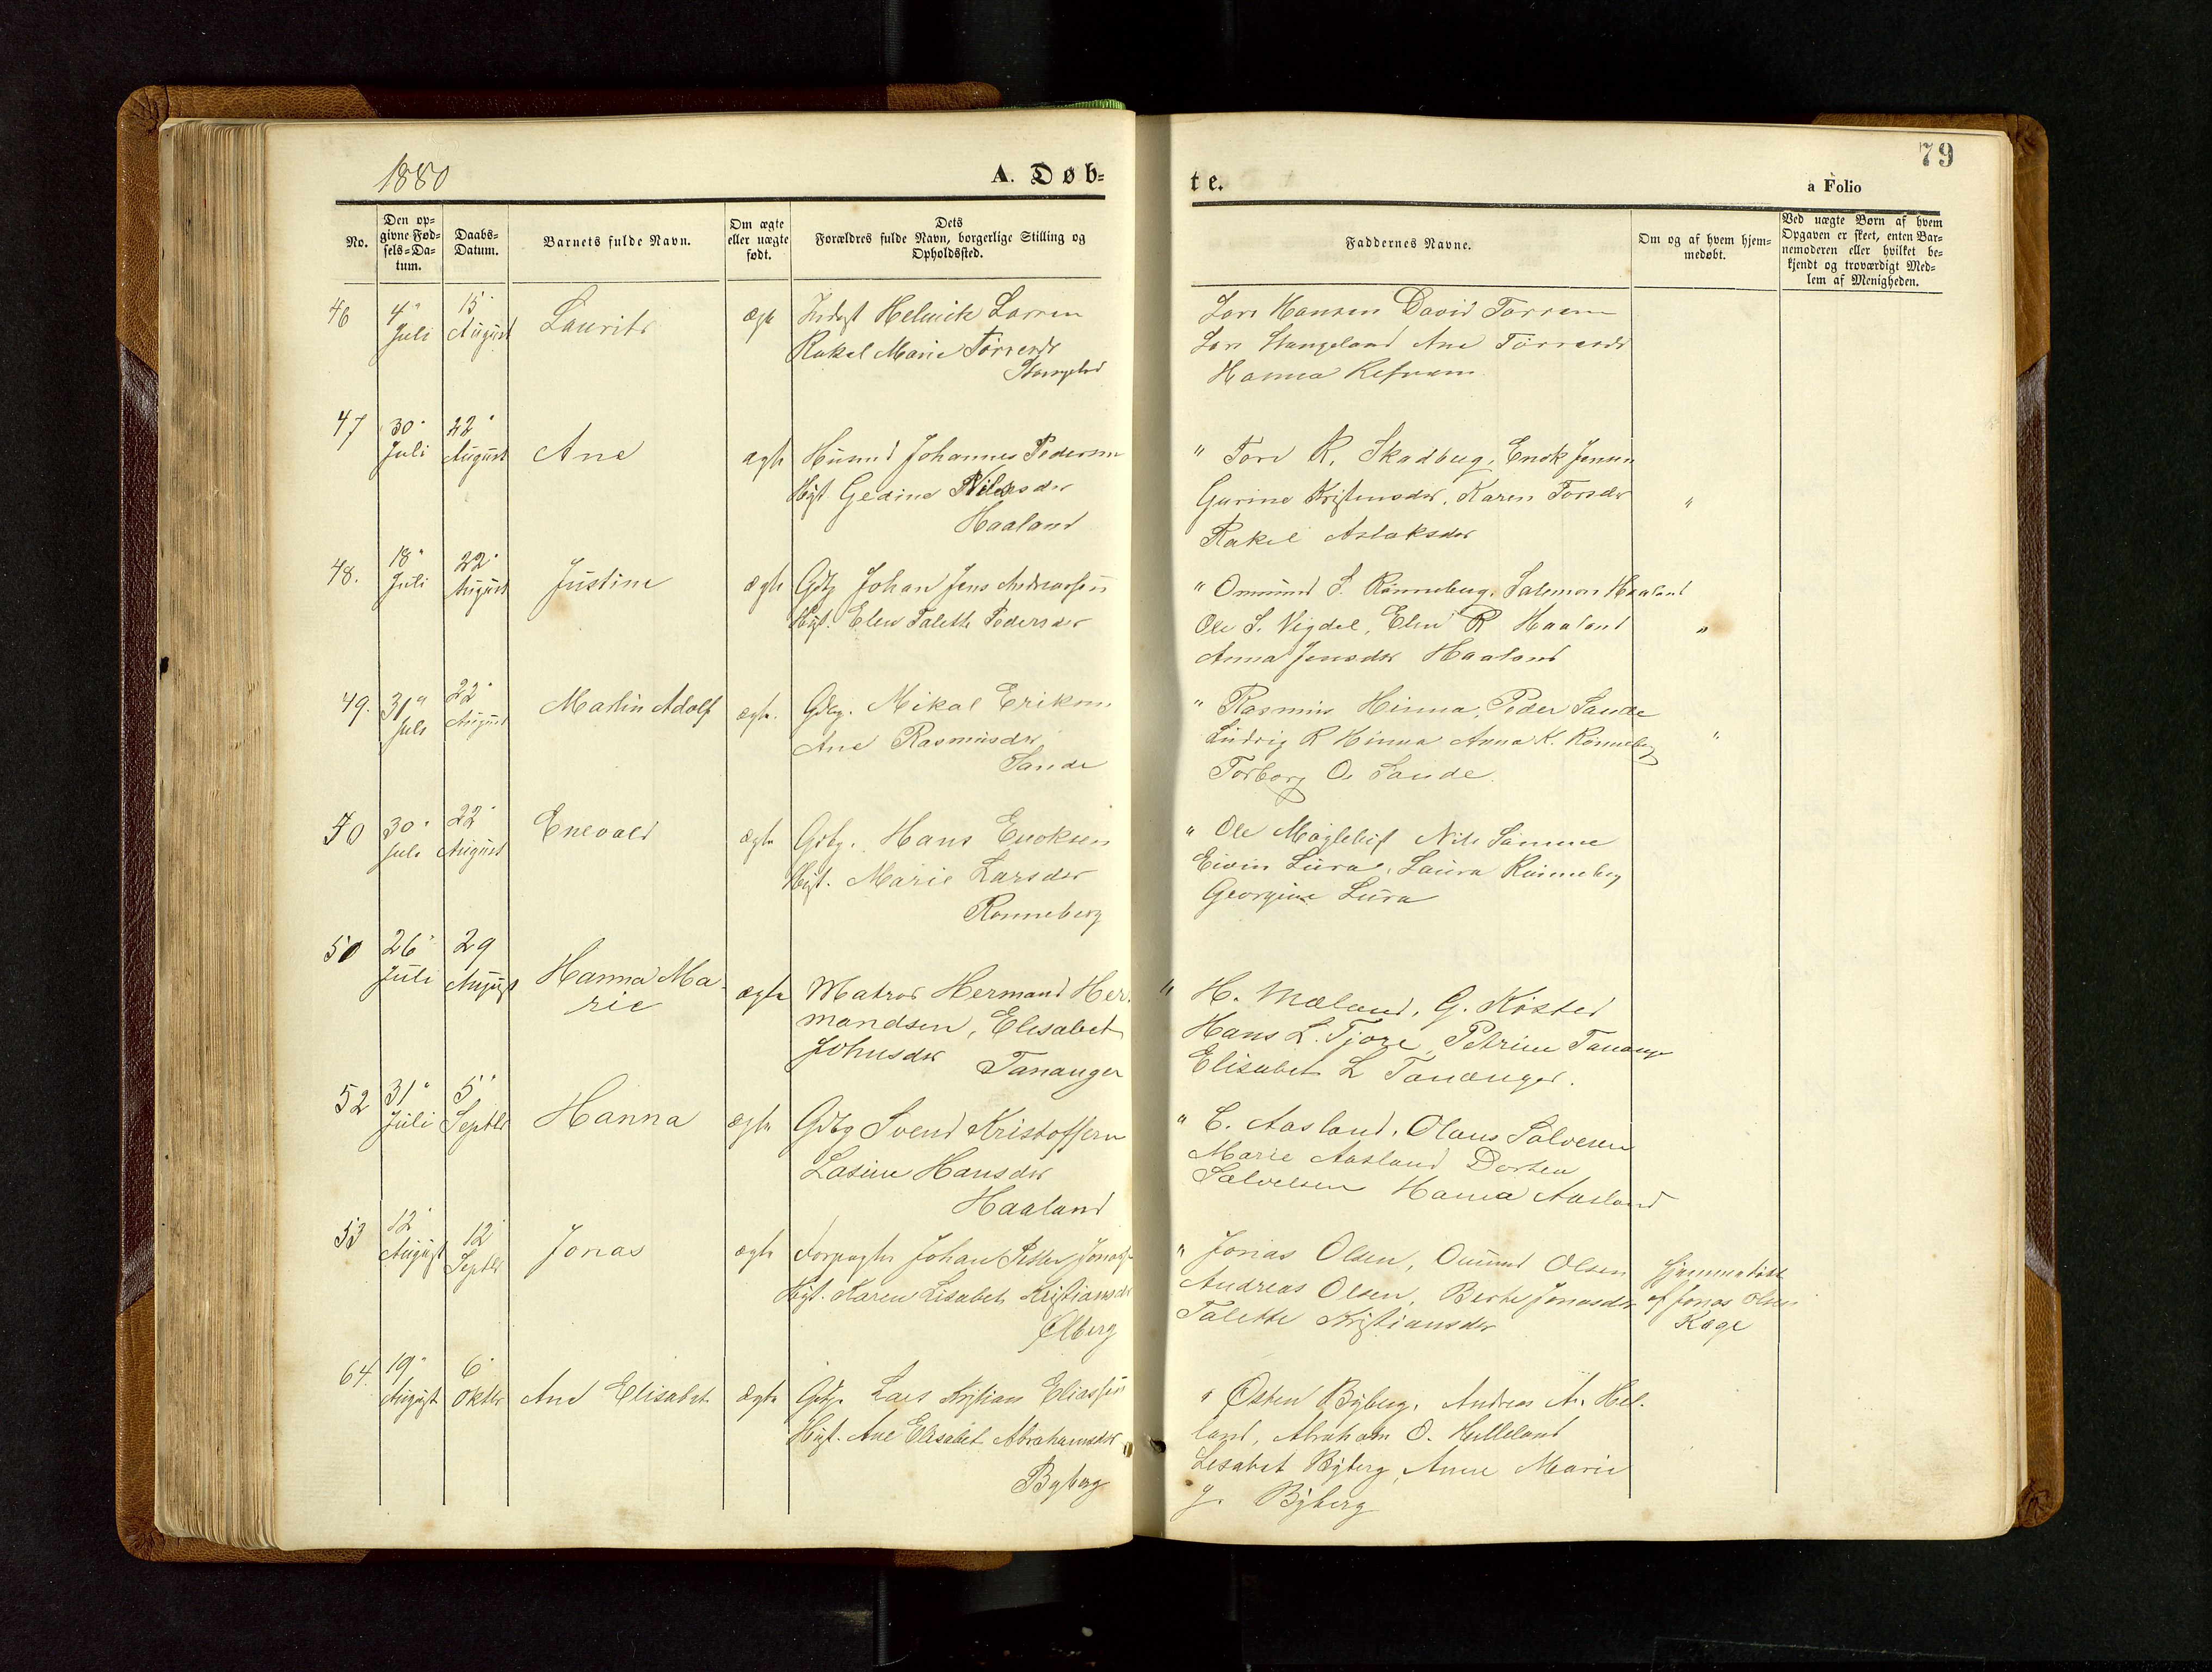 1880
A. Døb=
te.
79
a Folio
No.
Den op=
givne Fød=
sels=Da=
tum.
Daabs=
Datum.
Barnets fulde Navn.
Om ægte
eller uægte
født.
Dets
Forældres fulde Navn, borgerlige Stilling og
Opholdssted.
Faddernes Navne.
Om og af hvem hjem=
medøbt.
Ved uægte Børn af hvem
Opgaven er skeet, enten Bar=
nemoderen eller hvilket be=
kjendt og troværdigt Med=
lem af Menigheden.
46
4"
Juli
15"
August
Laurits
ægte
Rakel Marie
Lars Hansen David
Lars Stangeland Ane
Hanna
47
30"
Juli
22"
August
Ane
ægte
Husmd Johannes Pedersen
Hust. Gedine
Haaland
" Tore R. Skadberg, Enok Jensen
Gurine Kristensdtr, Karen Torsdtr
Rakel Aslaksdtr
"
48.
18"
Juli
22"
August
Justine
ægte
Gdbg Johan Jens Andreassen
Hust. Elen Talette Pedersdtr
" Ommund S. Rønneberg, Salemon Haaland
Ole S. Vigdel, Elen R Haaland
Anna Jensdtr Haaland
"
49.
31"
Juli
22"
August
Martin Adolf
ægte.
Gdbg. Mikal Eriksen
Ane Rasmusdtr
Sande
" Rasmus Hinna, Peder Sande
Ludvig R Hinna Anna K. Rønneberg
Torborg O. Sande
"
50
30"
Juli
22"
August
Enevald
ægte
Gdbg. Hans Enoksen
Hust. Marie Larsdtr
Rønneberg
" Ole Nils Sømme
Eivin Lura, Laura Rønneberg
Georgine Lura
50
26"
Juli
29
August
Hanna Ma-
rie
ægte
Matros Hermand Her-
mandsen, Elisabet
Johnsdtr Tananger
" H. Mæland, G. Køsted
Hans L. Tjore, Petrine Tananger
Elisabet L Tananger.
52
31"
Juli
5"
Septbr
Hanna
ægte
Gdbg Svend Kristoffersen
Lasine Hansdtr
Haaland
" C. Aasland, Olaus Salvesen
Marie Aasland Dortea
Salvesen Hanna Aasland
53
12"
August
12"
Septbr
Jonas
ægte
Forpagter Johan Petter
Hust. Karen Lisabet Kristiansdtr
Ølberg
" Jonas Olsen, Omund Olsen
Andreas Olsen, Berte Jonasdtr
Talette Kristiansdtr
Hjemmedøbt
af Jonas Olsen
Kage
64.
19"
August
6"
Oktbr
Ane Elisabet
ægte
Gdbg. Lars Kristian Eliassen
Hust. Ane Elisabet Abrahamsdtr
Byberg
" Østen Byberg, Andreas A. Hel-
land, Abraham O. Helleland
Lisabet Byberg, Anne Marie
J. Byberg